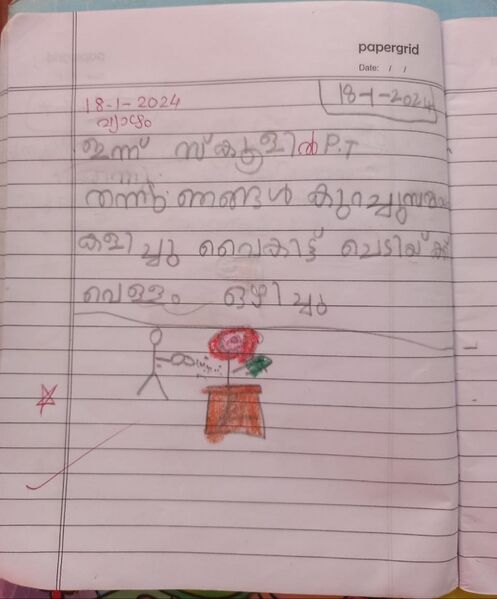 papergrid
Date: / /
18-1-2024
18-1-2024
വ്യാഴം
ഇന്ന് സ്കൂളിൽ P.T
തന്നു ഞങ്ങൾ കുറച്ചു
കളിച്ചു വൈകിട്ട് ചെടിയ്ക്ക്
വെള്ളം ഒഴിച്ചു